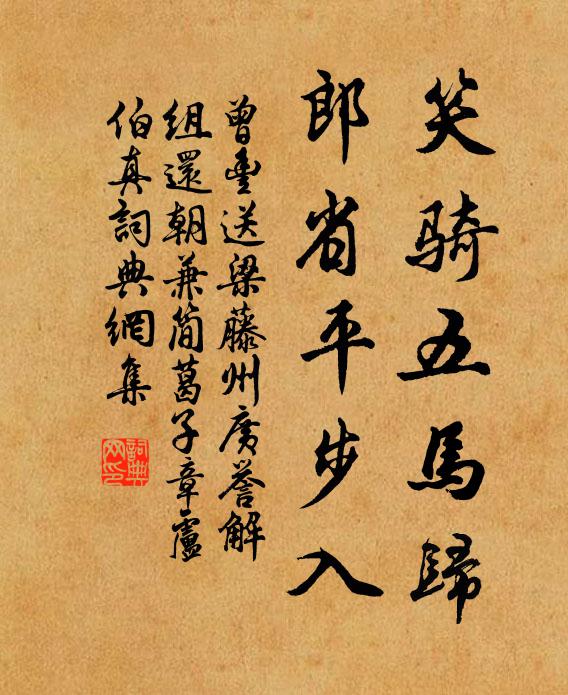 笑骑五馬歸
郎省平步入
曾豊送梁藤州廣譽解
組還朝兼簡葛子章盧
伯真詞典網集
詞典
网印